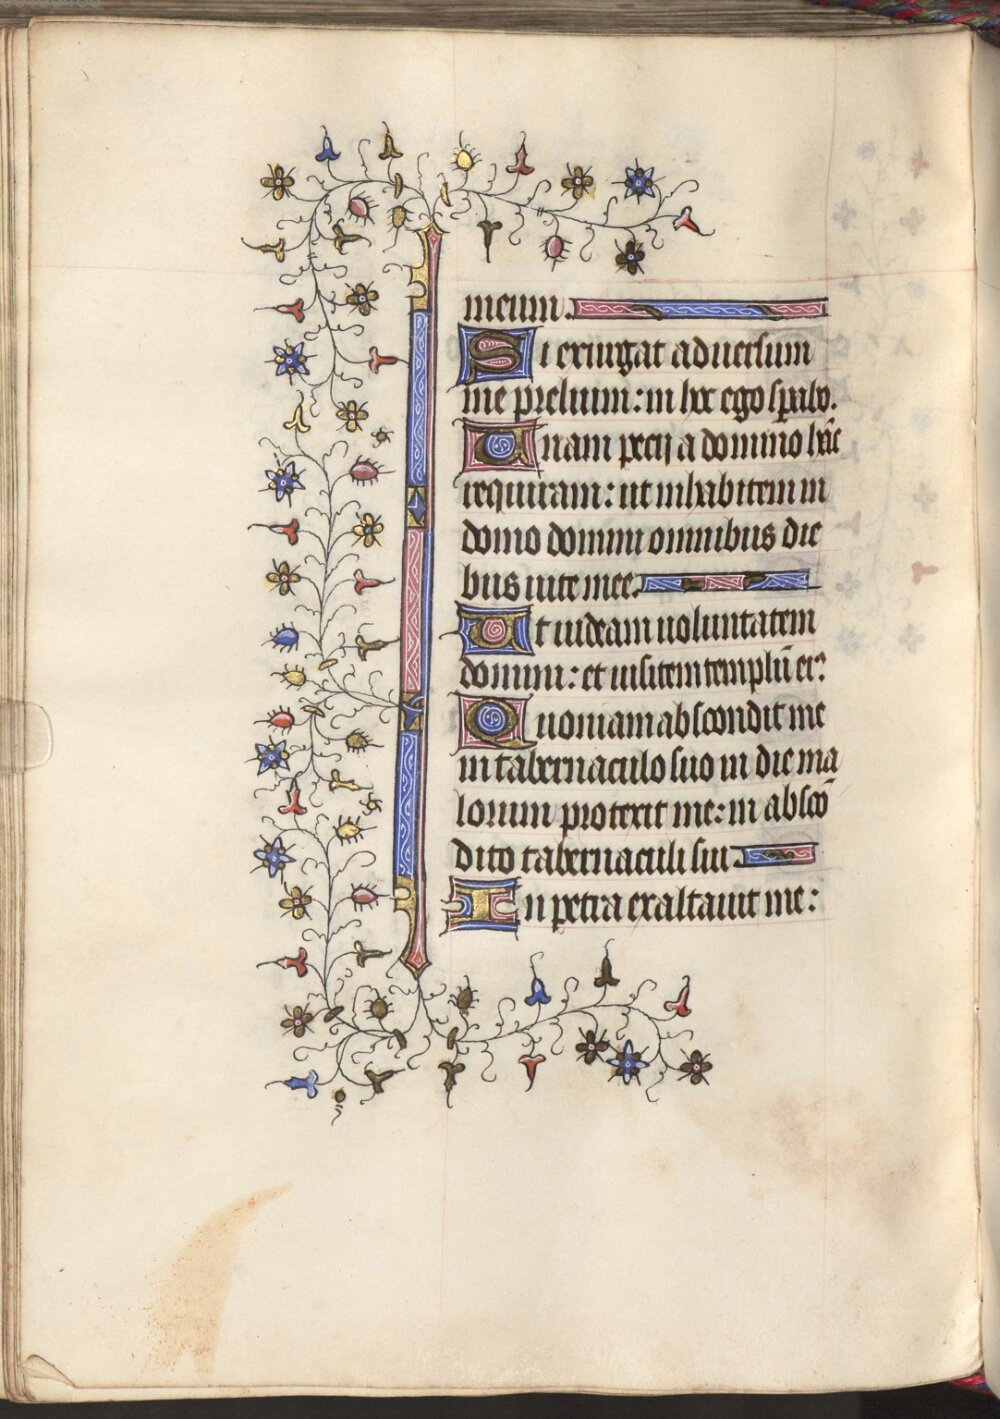 meum.
Si exurgat aduersum
me prelium: in hoc ego spabo.
Unam pecij a domino hāc
requiram: ut inhabitem in
domo domini omnibus die
bus uite mee.
Ut uideam uoluntatem
domini: et uisitem templū ei?
Quoniam abscondit me
in tabernaculo suo in die ma
lorum protexit me: in abscō
dito tabernaculi sui.
In petra exaltauit me: